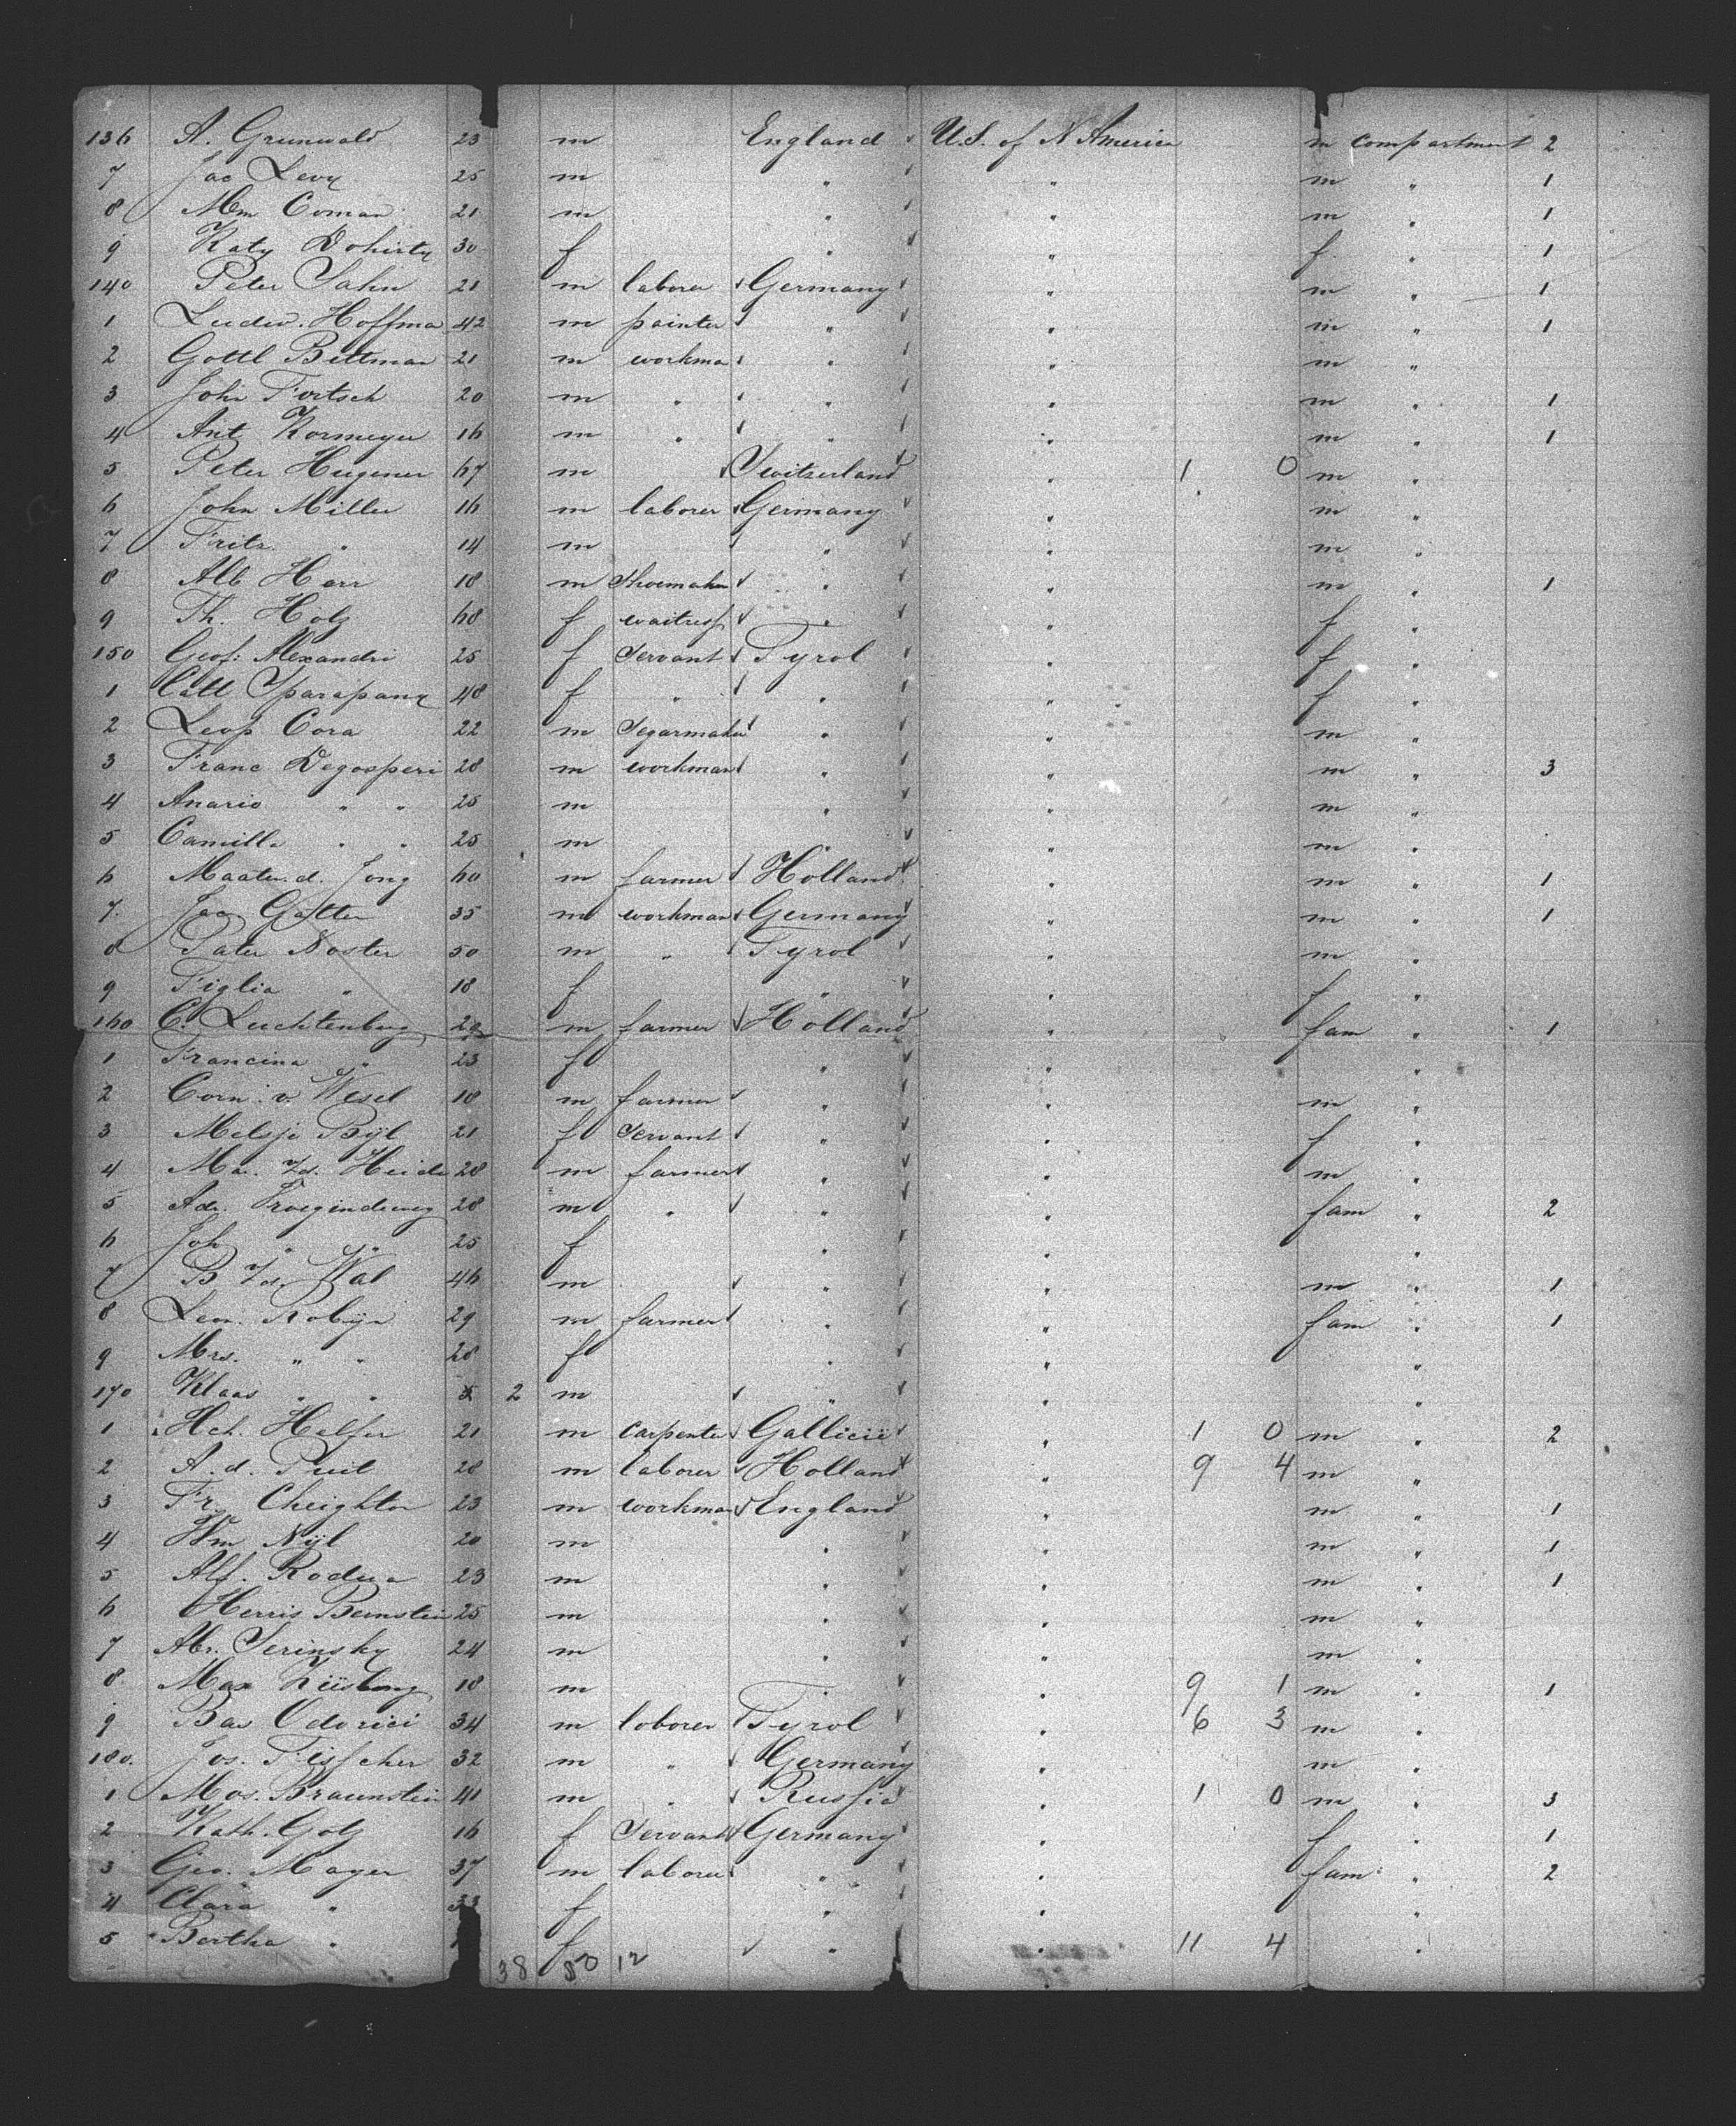 136 A. Grunwald 23 m England U.S. of N America m compartment 2
7 Jac Levy 25 m " " m " 1
8 Wm Coman 21 m " " m " 1
9 Katy Dohirty 30 f " " f " 1
140 Peter Jahn 21 m laborer Germany " m " 1
1 Ludw. Hoffma 42 m painter " " m " 1
2 Gottl Bettman 21 m workma " " m "
3 John Fortsch 20 m " " " m " 1
4 Ant Kormeyer 16 m " " " m " 1
5 Peter Hugener 67 m Switzerland " 1 0 m "
6 John Miller 16 m laborer Germany " m "
7 Fritz " 14 m " " m "
8 Alb Harr 18 m Shoemaker " " m " 1
9 Th. Holz 68 f waitress " " f "
150 Geof: Alexandri 25 f Servant Tyrol " f "
1 Catt 48 f " " " f "
2 Leop Cora 22 m Segarmaker " " m "
3 Franc Degosperi 28 m workman " " m " 3
4 Anario " " 25 m " " m "
5 Camilla " " 25 m " " m "
6 Maater. d. Jong 60 m farmer Holland " m " 1
7. Jac Gatter 35 m workman Germany " m " 1
8 Pater Noster 50 m " Tyrol " m "
9 Figlia " 18 f " " f "
160 C. Luchtenburg 29 m farmer Holland " fam " 1
1 Francina " 23 f " " "
2 Corn. v. Wesel 18 m farmer " " m "
3 Melsje Bijl 21 f Servant " " f "
4 Ma. Heide 28 m farmer " " m "
5 Adr. 28 m " " " fam " 2
6 Joh " " 25 f " " "
7 B Wal 46 m " " m " 1
8 Leon. Robijn 29 m farmer " " fam " 1
9 Mrs. " " 28 f " " "
170 Klaas " " 2 m " " "
1 Hch. Helfer 21 m carpenter Gallicië " 1 0 m " 2
2 A. d. Puit 28 m laborer Holland " 9 4 m "
3 Fr. Cheighton 23 m workman England " m " 1
4 Wm Nijl 20 m " " m " 1
5 Alf. Rodua 23 m " " m " 1
6 Herris Bernstein 25 m " " m "
7 Abr. Serinsky 24 m " " m "
8 Max 18 m " " 9 1 m " 1
9 Bas Odorici 34 m loborer Tyrol " 6 3 m "
180. Jos. Fisscher 32 m " Germany " m "
1 Mos. Braunstein 41 m " Russia " 1 0 m " 3
2 Kath. Golz 16 f Servant Germany " f " 1
3 Geo. Mayer 37 m laborer " " fam " 2
4 Clara " 33 f " " "
5 Bertha " f " " 11 4 "
38 50 12